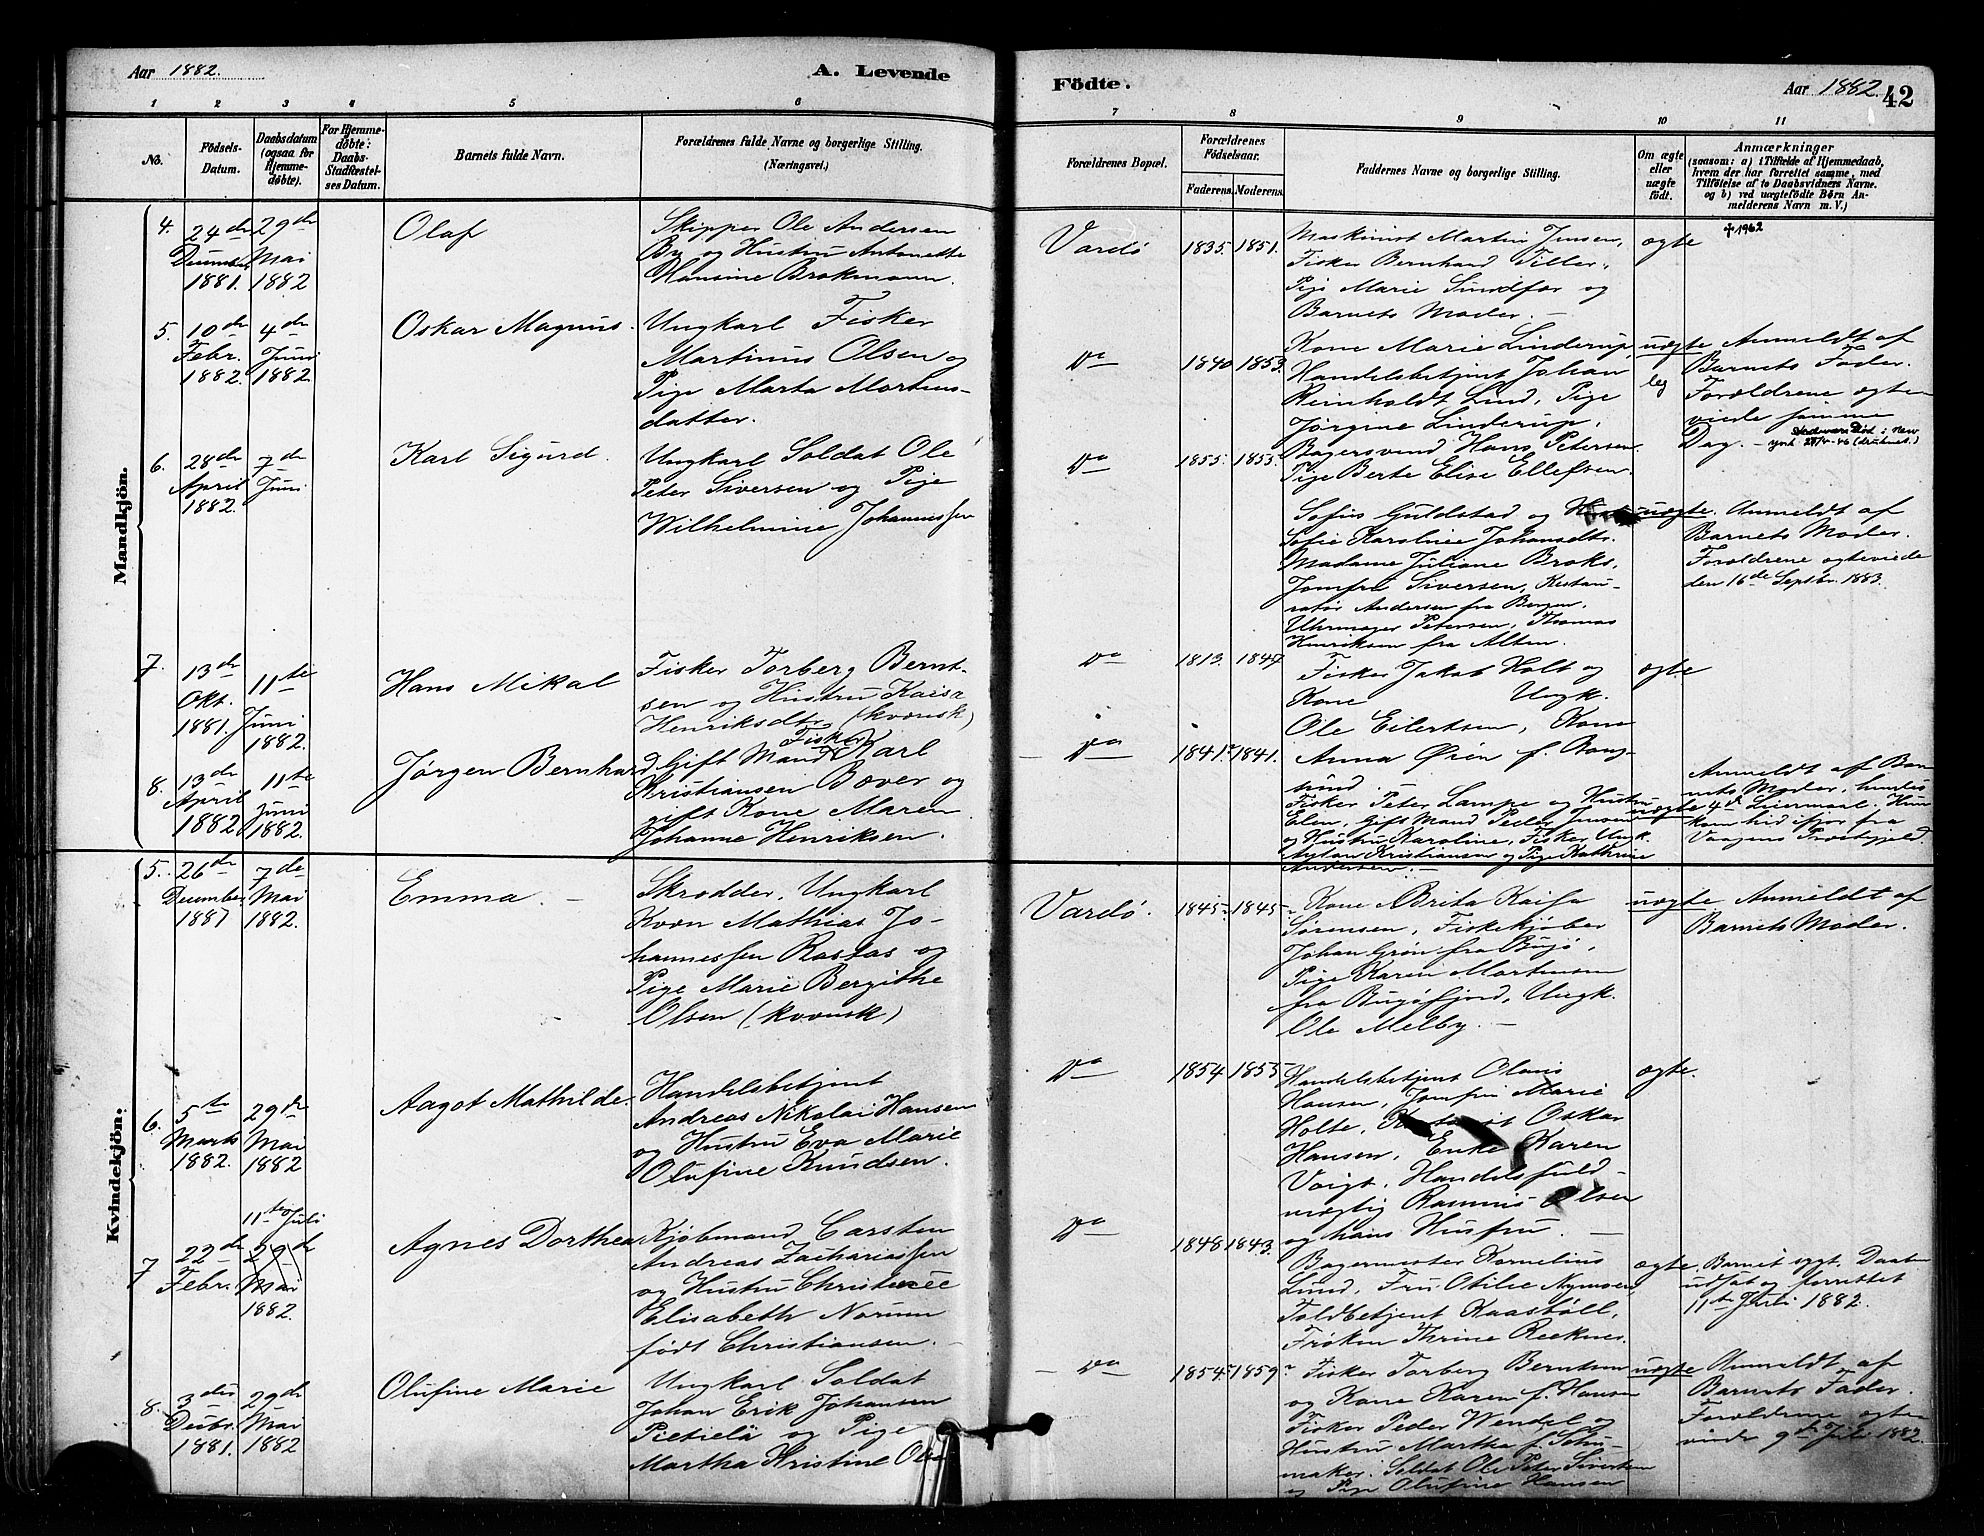 Aar 1882.
A. Levende
Födte.
Aar 1882.
42
1 2 3 4 5 6 7 8 9 10 11
No.
Födsels-
Datum.
Daabsdatum
(ogsaa for
Hjemme-
døbte).
For Hjemme-
døbte:
Daabs-
Stadfæstel-
ses Datum.
Barnets fulde Navn.
Forældrenes fulde Navne og borgerlige Stilling.
(Næringsvei.)
Forældrenes Bopæl.
Forældrenes
Födselsaar.
Faderens. Moderens.
Faddernes Navne og borgerlige Stilling.
Om ægte
eller
uægte
födt.
Anmærkninger
(saasom: a) i Tilfælde af Hjemmedaab,
hvem der har forrettet samme, med
Tilföielse af to Daabsvidners Navne.
og b) ved uægtefödte Børn An-
melderens Navn m. V.)
Mandkjön.
4.
24de
December
1881.
29de
Mai
1882
Olaf
Skipper Ole Andersen
By og Hustru Antonette
Hansine Brokmann.
Vardø
1835. 1851.
Maskinist Martin Jensen,
Fisker Bernhard Tiller,
Pige Marie Sundfær og
Barnets Moder. —
ægte
✝1962
5.
10de
Febr.
1882.
4de
Juni
1882
Oskar Magnus.
Ungkarl Fisker
Martinus Olsen og
Pige Marta Mortens-
datter.
Do
1840 1853.
Kone Marie Linderup,
Handelsbetjent Johan
Reinholdt Lund, Pige
Jørgine Linderup,
Bagersvend Hans Petersen.
Pige Berte Elise Ellefsen.
uægte
Anmeldt af
Barnets Fader.
Forældrene ægte
viede samme
Dag. —
6.
28de
April
1882.
7de
Juni
Karl Sigurd.
Ungkarl Soldat Ole
Peter Siversen og Pige
Wilhelmine Johannessen
Do
1855. 1853.
Sofus Guldstad og
Sofie Karoline Johansdtr.
Madame Juliane Broks,
Jomfru Siversen, Restau-
ratør Andersen fra Bergen,
Uhrmager Petersen, Thomas
Henriksen fra Alten.
uægte.
Anmeldt af
Barnets Moder.
Forældrene ægteviede
den 16de Septbr. 1883.
7.
13de
Okt.
1881.
11te
Juni
1882.
Hans Mikal
Fisker Torberg Bernt-
sen og Hustru Kaisa
Henriksdtr (kvænsk)
Do
1813. 1847
Fisker Jakob Holt og
Kone Ungk.
Ole Eilertsen, Kone
Anna Øien f. Bang-
sund. —
ægte
8.
13de
April
1882
11te
Juni
1882.
Jørgen Bernhard.
Gift Mand Fisker Karl
Kristiansen Bæver og
gift Kone Maren
Johanne Henriksen.
Do
1841. 1841.
Fisker Peter Lampe og Hustru
Elen, Gift Mand Peder Jensen
og Hustru Karoline, Fisker Ungk.
Kristiansen og Pige Kathrine
Andersen. —
uægte
Anmeldt af Bar-
nets Moder, hendes
4de Leiermaal. Hun
kom hid ifjor fra
Vaagens Præstegjeld.
Kvindekjön.
5.
26de
December
1881
7de
Mai
1882.
Emma. —
Skrædder, Ungkarl
Kvæn Mathias Jo-
hannessen Rastas og
Pige Marie Bergithe
Olsen (kvænsk)
Vardø.
1845. 1845.
Kone Brita Kaisa
Sørensen, Fiskekjøber
Johan Grøn fra Bugø,
Pige Karen Martinsen
fra Bugøfjord, Ungk.
Ole Melby. —
uægte
Anmeldt af
Barnets Moder.
6.
5te
Marts
1882.
29de
Mai
1882
Aagot Mathilde.
Handelsbetjent
Andreas Nikolai Hansen
og Hustru Eva Marie
Olufine Knudsen.
Do
1854. 1855
Handelsbetjent Olaus
Hansen, Jomfru Marie
Holte, Oskar
Hansen, Enke Karen
Voigt, Handelsfuld-
mægtig Rasmus Olsen
og hans Husfru. —
ægte.
7
22de
Febr.
11te Juli
29de
Mai
1882.
Agnes Dorthea
Kjøbmand Carsten
Andreas Zachariassen
og Hustru Christense
Elisabeth Norum
født Christiansen. —
Do
1848 1843.
Bagermester Kornelius
Lund, Fru Otilie Nymoen,
Toldbetjent Kaasbøll,
Frøken Thrine Reeknes.
ægte.
Barnet sygt. Daaben
udsat og forrettet
11te Juli 1882.
8.
3die
Decbr.
1881.
29de
Mai
1882
Olufine Marie
Ungkarl Soldat
Johan Erik Johansen
Pietielä og Pige
Martha Kristine
Do
1854. 1859.
Fisker Torberg Berntsen
og Kone Karen f. Hansen
Fisker Peder Wendel og
Hustru Martha f. Schu-
maker. Soldat Ole Peter Siversen
og Pige Olufine Hansen
uægte
Anmeldt af
Barnets Fader.
Forældrene ægte
viede 9de Juli 1882.